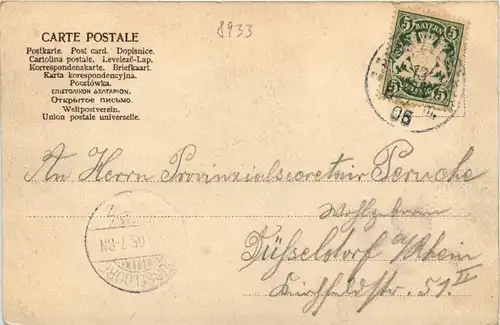 8933
CARTE POSTALE
Postkarte. Post card. Dopisnice.
Cartolina postale. Levelező-Lap.
Korrespondenzkarte. Briefkaart.
Karta korespondencyjna.
Pocztówka.
ΕΠΙΣΤΟΛΙΚΟΝ ΔΕΛΤΑΡΙΟΝ.
Открытое письмо.
Weltpostverein.
Union postale universelle.
5 BAYERN 5
5 5
05
An Herrn Provinzialsecretair Peruche
Wohlgeboren
Düsseldorf a/Rhein
Kirchfeldstr. 51. II
DÜSSELDORF